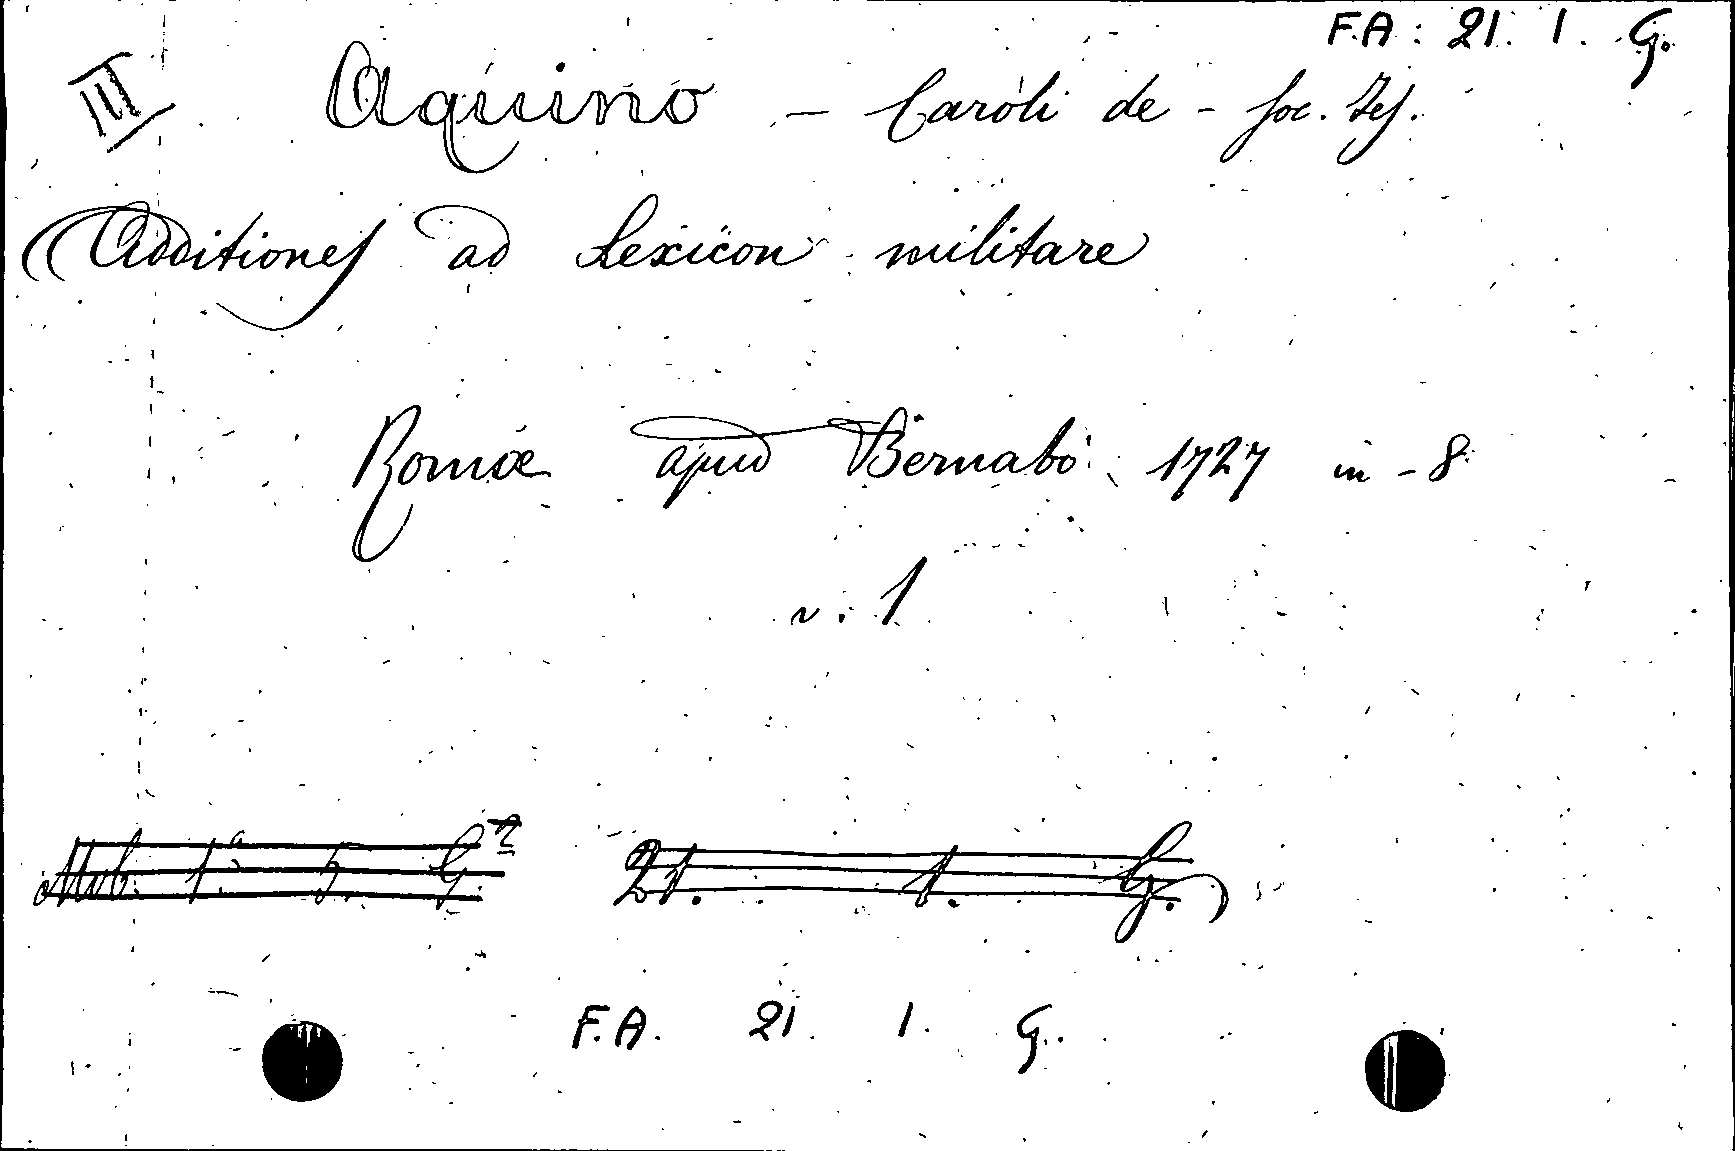 F.A: 21. 1. G.
III Aquino - Caroli de - Soc. Jes.
Additiones ad Lexicon militare
Romæ apud Bernabò 1727 in-8
v: 1
21. 1. G.
F.A. 21. 1. G.